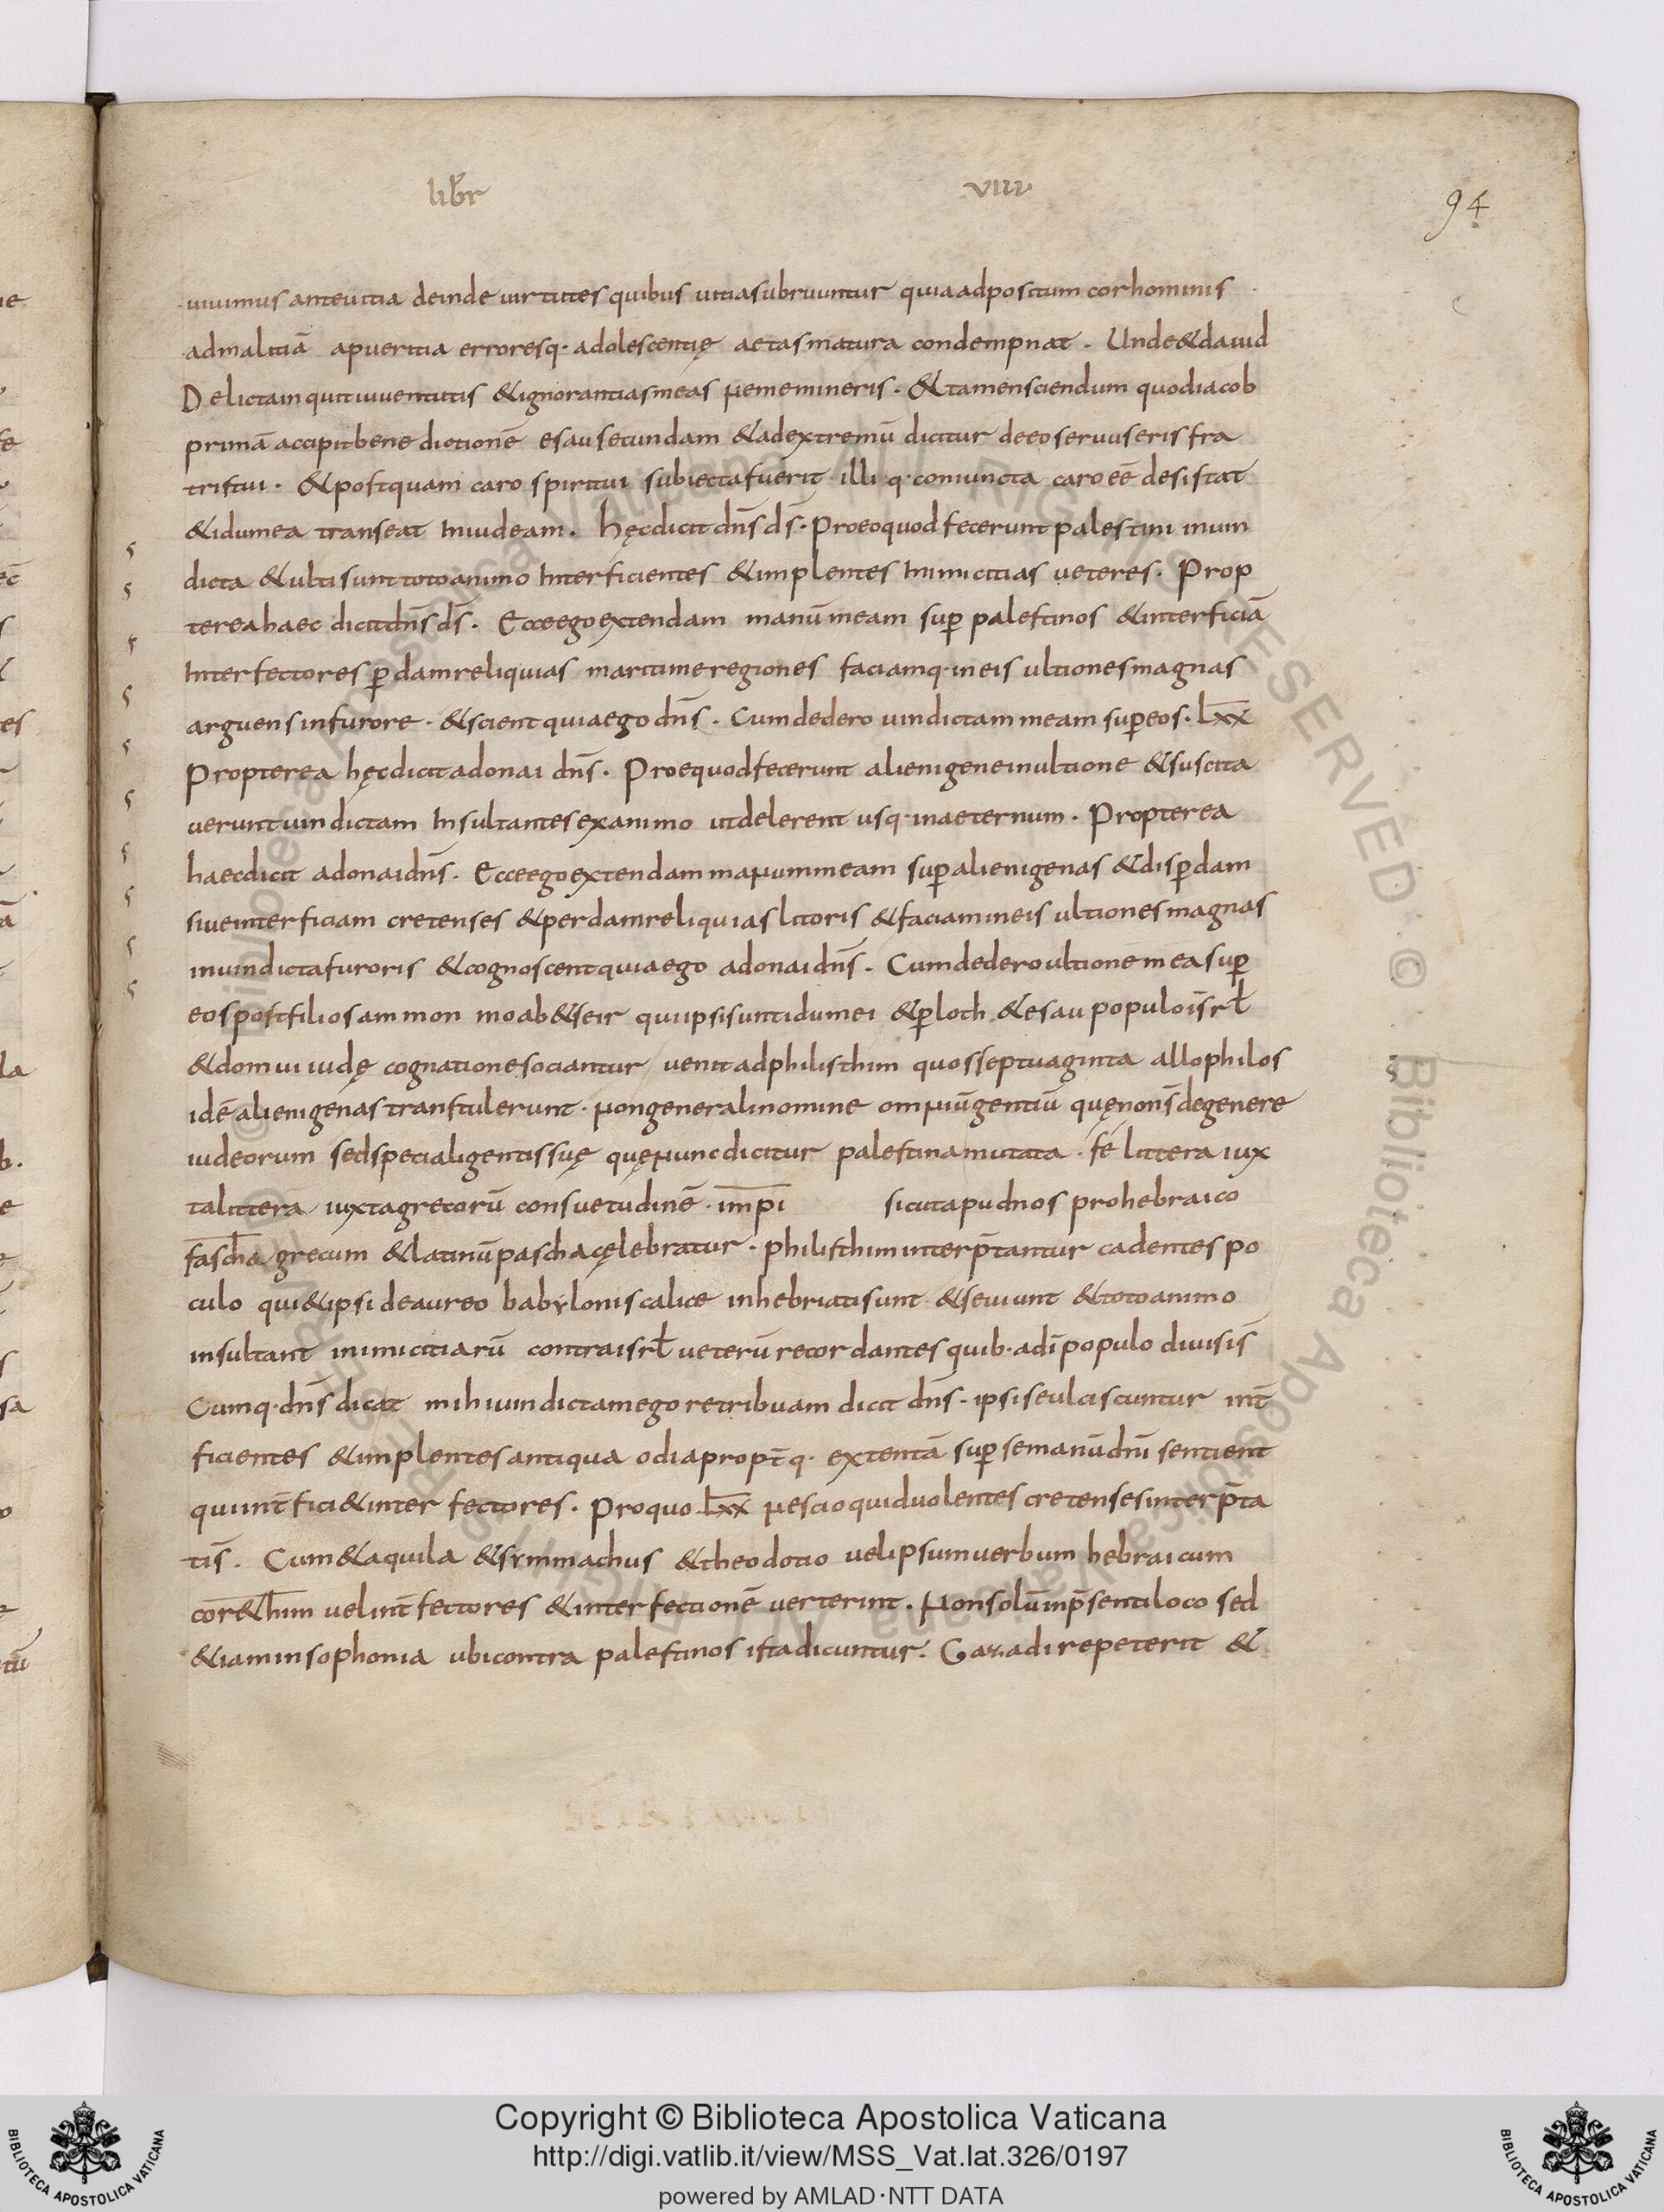 libr viiii
94
uiuimus anteuitia deinde uirtutes quibus uitiasubruuntur quiaadpositum corhominis
admalitiā apueritia erroresq· adolescentię aetasmatura condempnat. Unde&dauid
Delictainqutiuuentutis &ignorantiasmeas nememineris. &tamensciendum quodiacob
primā accipitbenedictionē esausecundam &adextremū dicitur deeoseruuserisfra
tristui. &postquam caro spiritui subiectafuerit illiq·coniuncta caro eē desistat
&idumea transeat iniudeam. hęcdicit dn̄s ds̄. Proeoquodfecerunt palestini inuin
dicta &ultisunttotoanimo interficientes &implentes inimicitias ueteres. Prop
tereahaec dicitdn̄s ds̄. Ecceegoextendam manūmeam sup̄ palestinos &interficiā
interfectores p̄damreliquias maritimeregiones faciamq·ineis ultionesmagnas
arguensinfurore. &scientquiaego dn̄s. Cumdedero uindictammeam sup̄eos. lxx̄
Propterea hęcdicitadonai dn̄s. Proequodfecerunt alienigeneinultione &suscita
ueruntuindictam insultantesexanimo utdelerent usq·inaeternum. Propterea
haecdicit adonaidn̄s. Ecceegoextendammanummeam sup̄alienigenas &disp̄dam
siueinterficiam cretenses &perdamreliquiaslitoris &faciamineis ultionesmagnas
inuindictafuroris &cognoscentquiaego adonaidn̄s. Cumdederoultionēmeāsup̄
eospostfiliosammon moab&seir quiipsisuntidumei &p̄loth &esau populoisrł
&domui iudę cognationesociantur uenitadphilisthim quosseptuaginta allophilos
idē alienigenastranstulerunt. nongeneralinomine omniūgentiū quęnons̄degenere
iudeorum sedspecialigentissuę quęnuncdicitur palestinamutata. fe littera iux
talittera iuxtagrecorū consuetudinē. im̄pi sicutapudnos prohebraico
fascha grecum &latinūpaschacęlebratur. philisthiminterp̄tantur cadentespo
culo qui&ipsideaureo babylonis calice inhebriatisunt &seuiunt &totoanimo
insultant inimicitiarū contraisrł ueterūrecordantesquib·adīpopulo diuisis
Cumq·dn̄s dicat mihiuindictamegoretribuam dicit dn̄s. ipsiseulciscuntur int̄
ficientes &implentesantiqua odiapropt̄q· extentā sup̄semanūdn̄i sentient
quiint̄fici&interfectores. Proquo lxx̄ nescioquiduolentescretensesinterp̄ta
tis̄. Cum&aquila &symmachus &theodotio uelipsumuerbum hebraicum
cor&him uelint̄fectores &interfectionē uerterint. Nonsolūinp̄sentiloco sed
&iaminsophonia ubicontra palestinos istadicuntur. Gazadirepeterit &
Copyright © Biblioteca Apostolica Vaticana
http://digi.vatlib.it/view/MSS_Vat.lat.326/0197
powered by AMLAD·NTT DATA